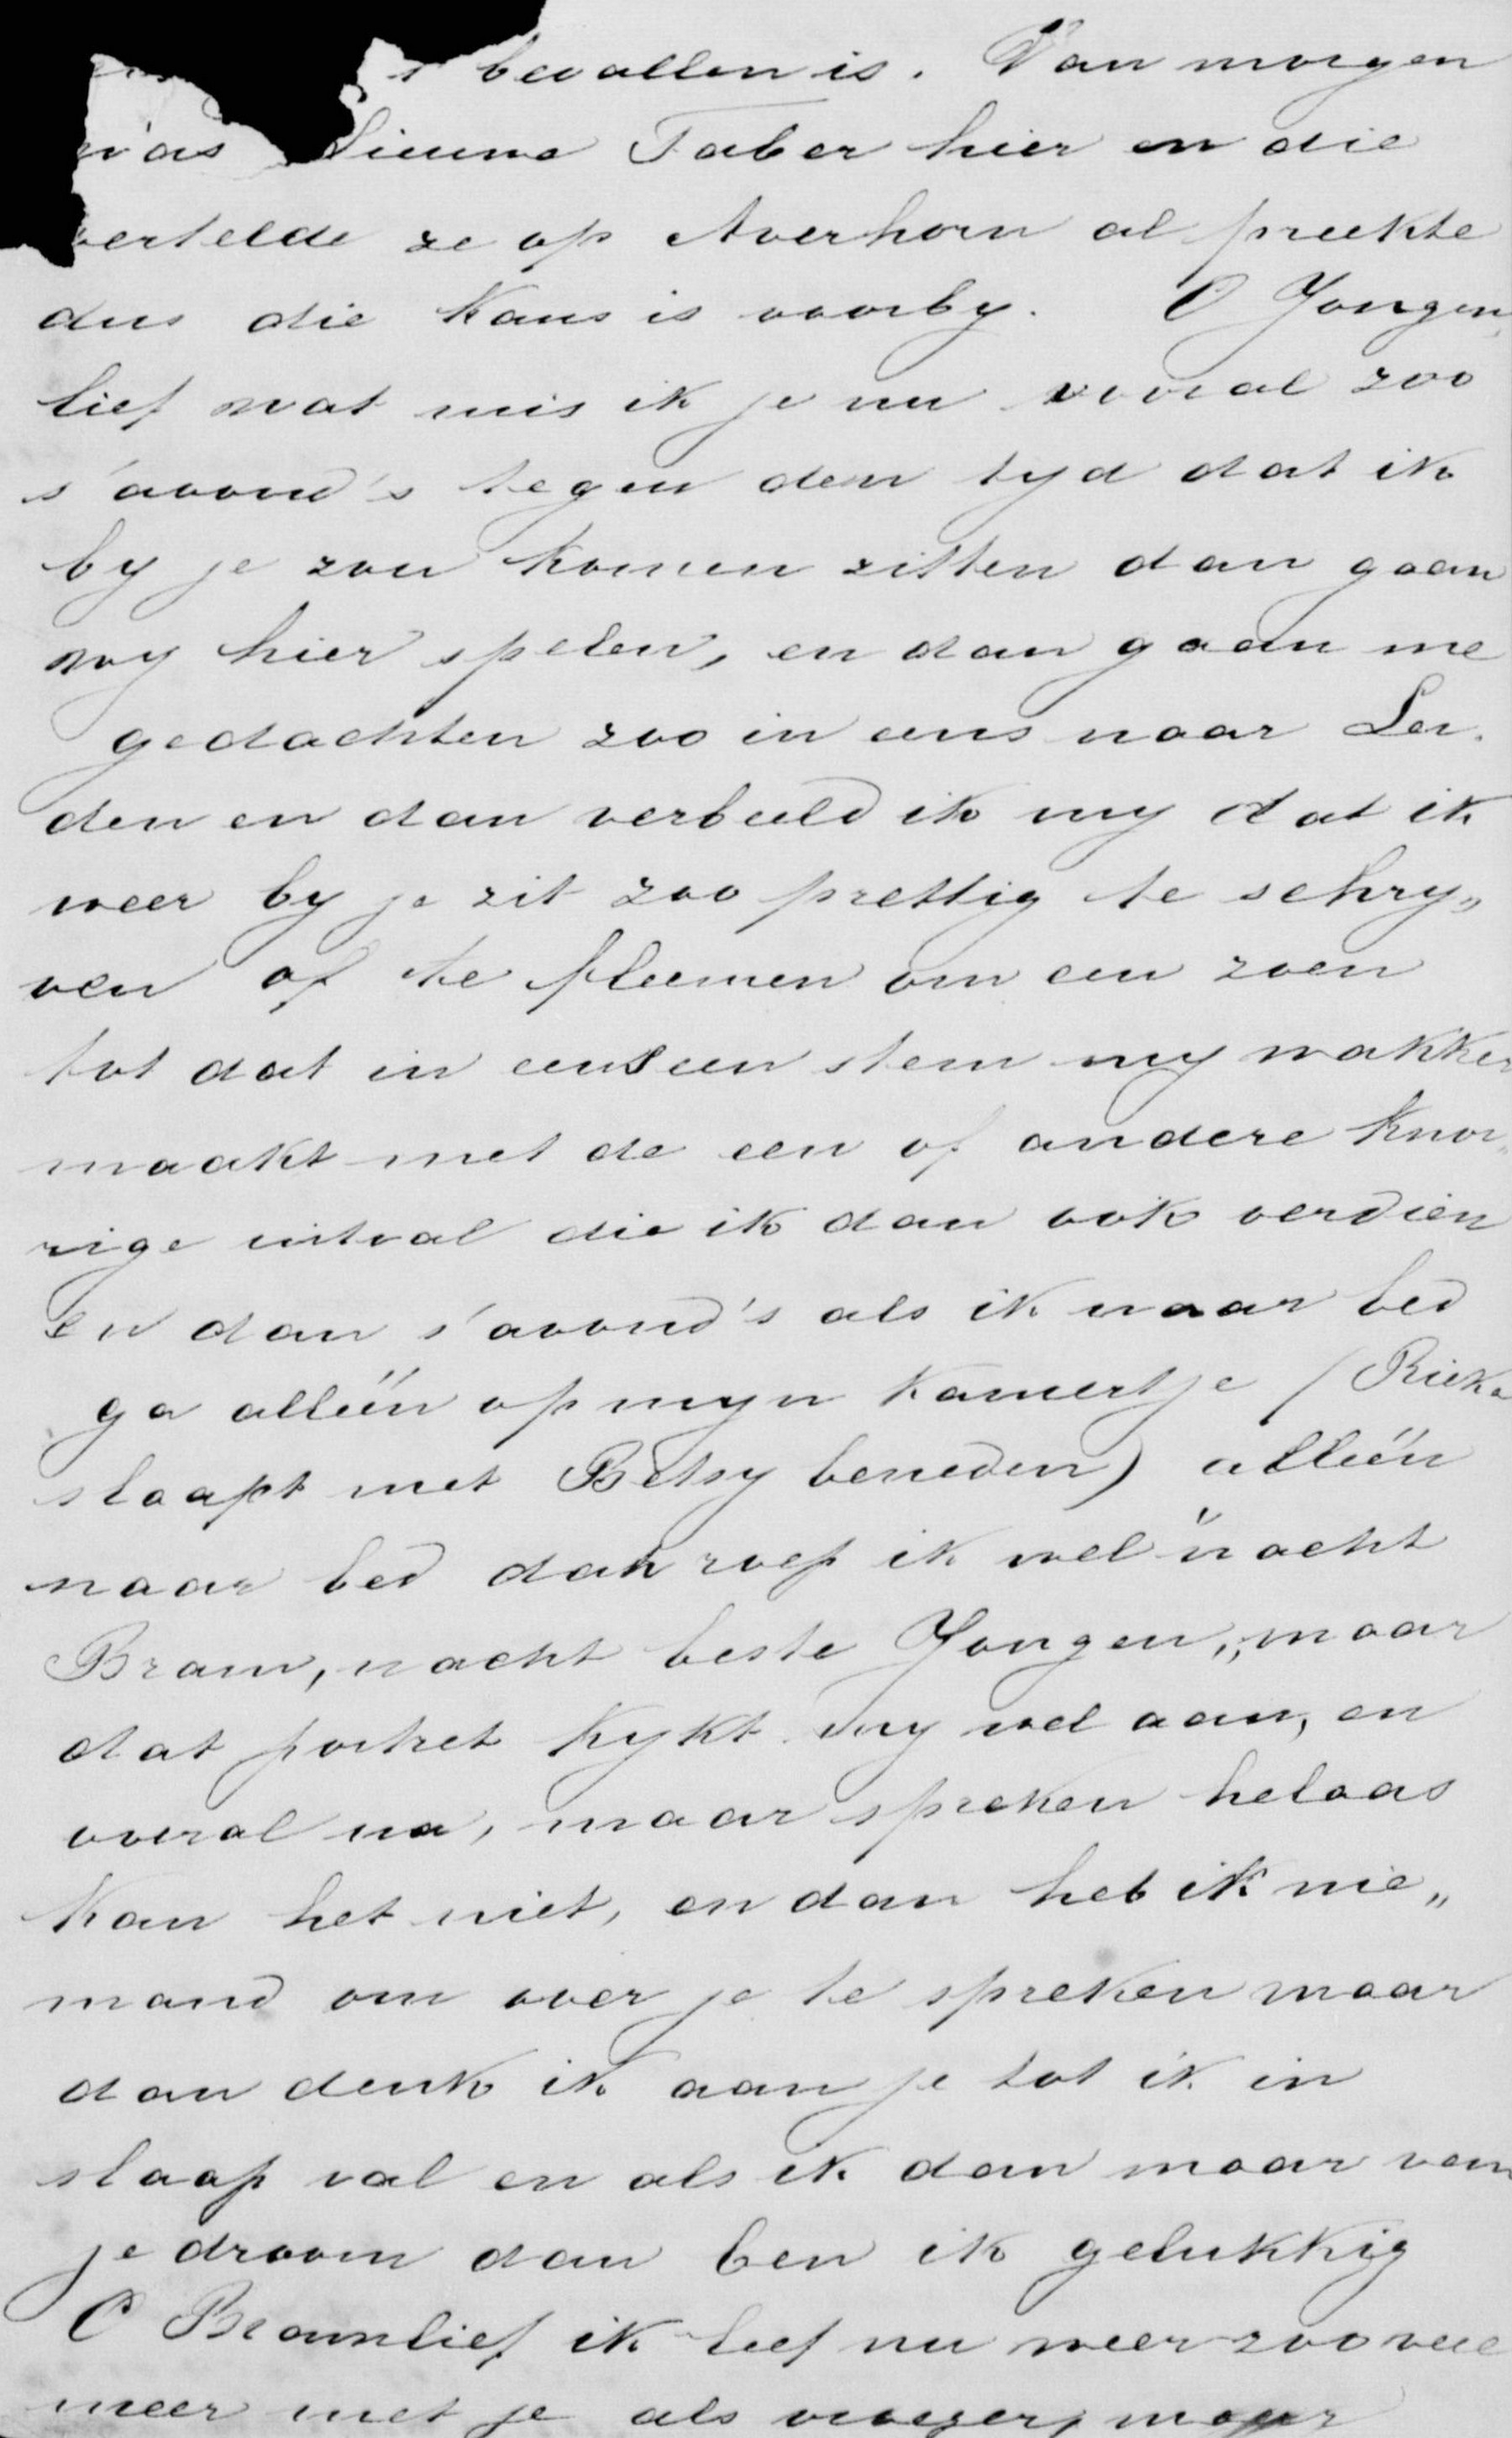 bevallen is. Van morgen
was Lieuwe Faber hier en die
vertelde ze op Averhorn al preekte
dus die kans is voorby. O Jongen
lief wat mis ik je nu vooral zoo
s'avond's tegen den tyd dat ik
by je zou komen zitten dan gaan
wy hier spelen, en dan gaan me
gedachten zoo in eens naar Lei-
den en dan verbeeld ik my dat ik
weer by je zit zoo prettig te schry„
ven of te fleemen om een zoen
tot dat in eens een stem my wakker
maakt met de een of andere knor„
rige uitval die ik dan ook verdien
en dan s'avond's als ik naar bed
ga alléén op myn kamertje (Rieka
slaapt met Betsy beneden) alléén
naar bed dan roep ik wel "nacht
Bram, nacht beste Jongen," maar
dat portret kykt my wel aan, en
overal na, maar spreken helaas
kan het niet, en dan heb ik nie„
mand om over je te spreken maar
dan denk ik aan je tot ik in
slaap val en als ik dan maar van
je droom dan ben ik gelukkig
O Bramlief ik leef nu weer zoo veel
meer met je als vroeger, maar